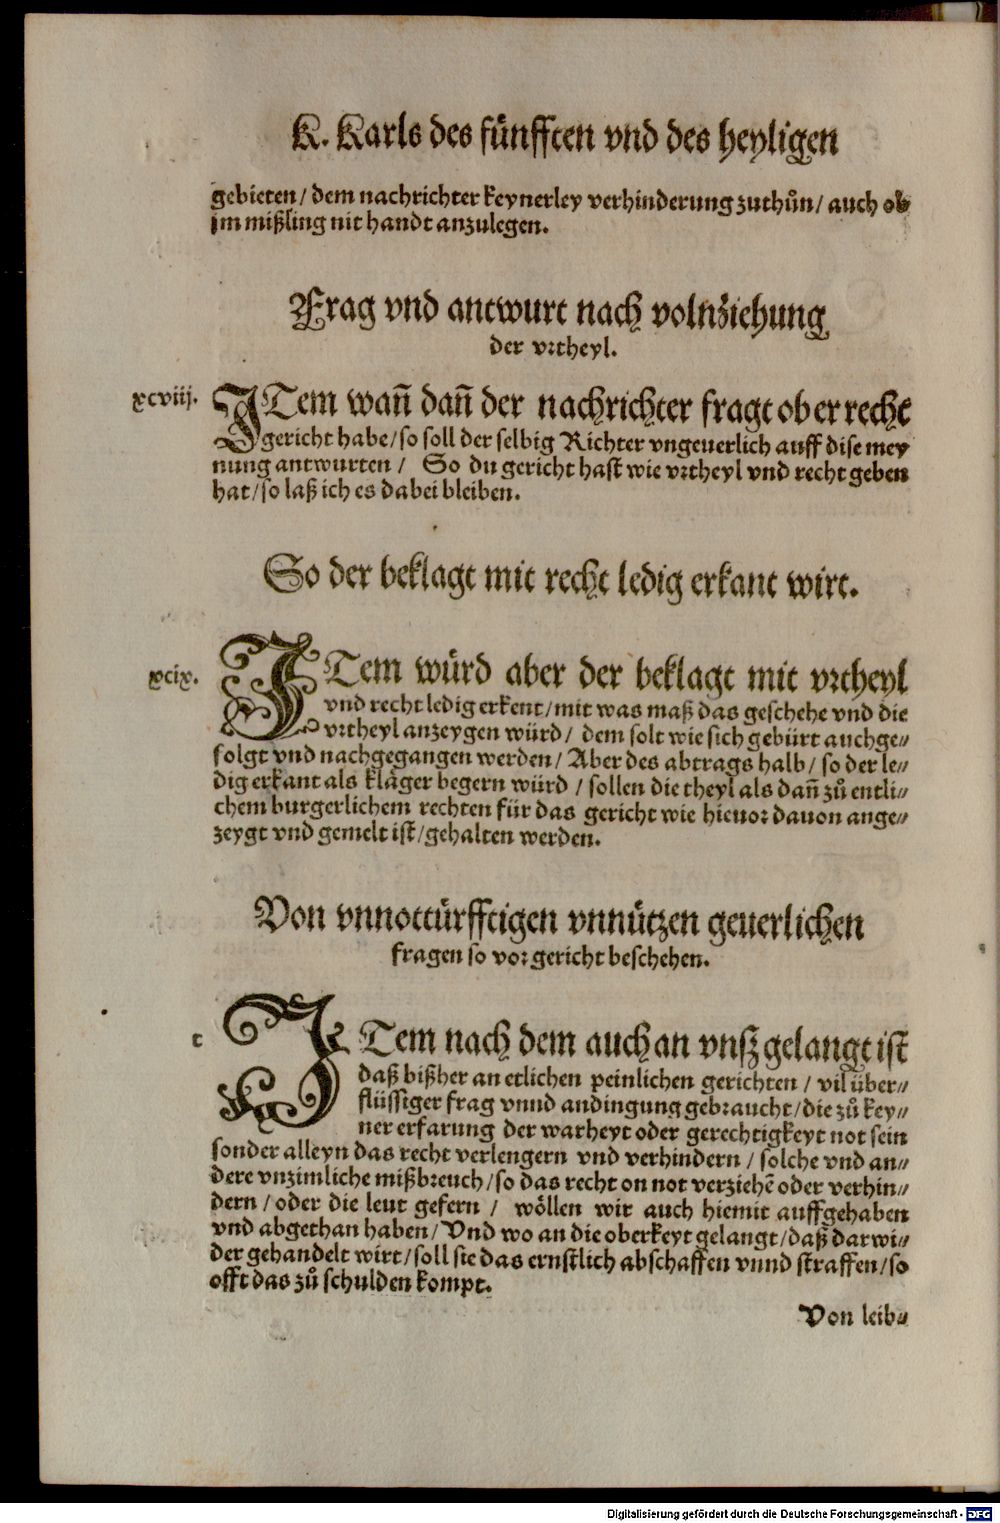 K. Karls des fünfften vnd des heyligen
gebieten / dem nachrichter keynerley verhinderung zuthůn / auch ob
jm mißling nit handt anzulegen.
Frag vnd antwurt nach volnziehung
der vrtheyl.
xcviij. ITem wañ dañ der nachrichter fragt ob er recht
gericht habe / so soll der selbig Richter vngeuerlich auff dise mey
nung antwurten / So du gericht hast wie vrtheyl vnd recht geben
hat / so laß ich es dabei bleiben.
So der beklagt mit recht ledig erkant wirt.
xcix. ITem würd aber der beklagt mit vrtheyl
vnd recht ledig erkent / mit was maß das geschehe vnd die
vrtheyl anzeygen würd / dem solt wie sich gebürt auch ge⸗
folgt vnd nachgegangen werden / Aber des abtrags halb / so der le⸗
dig erkant als kläger begern würd / sollen die theyl als dañ zů entli⸗
chem burgerlichem rechten für das gericht wie hieuor dauon ange⸗
zeygt vnd gemelt ist / gehalten werden.
Von vnnottürfftigen vnnützen geuerlichen
fragen so vor gericht beschehen.
c ITem nach dem auch an vnsz gelangt ist
daß bißher an etlichen peinlichen gerichten / vil über⸗
flüssiger frag vnnd andingung gebraucht / die zů key⸗
ner erfarung der warheyt oder gerechtigkeyt not sein
sonder alleyn das recht verlengern vnd verhindern / solche vnd an⸗
dere vnzimliche mißbreuch / so das recht on not verziehẽ oder verhin⸗
dern / oder die leut gefern / wöllen wir auch hiemit auffgehaben
vnd abgethan haben / Vnd wo an die oberkeyt gelangt / daß darwi⸗
der gehandelt wirt / soll sie das ernstlich abschaffen vnnd straffen / so
offt das zů schulden kompt.
Von leib⸗
Digitalisierung gefördert durch die Deutsche Forschungsgemeinschaft - DFG